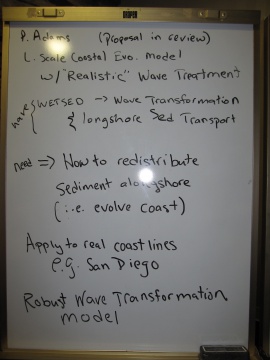 P. Adams (Proposal in review)
L. Scale Coastal Evo. model
w/ "Realistic" Wave Treatment
have { WETSED → Wave Transformation
{ longshore Sed Transport
need => How to redistribute
sediment alongshore
(i.e. evolve coast)
Apply to real coastlines
e.g. San Diego
Robust Wave Transformation
model